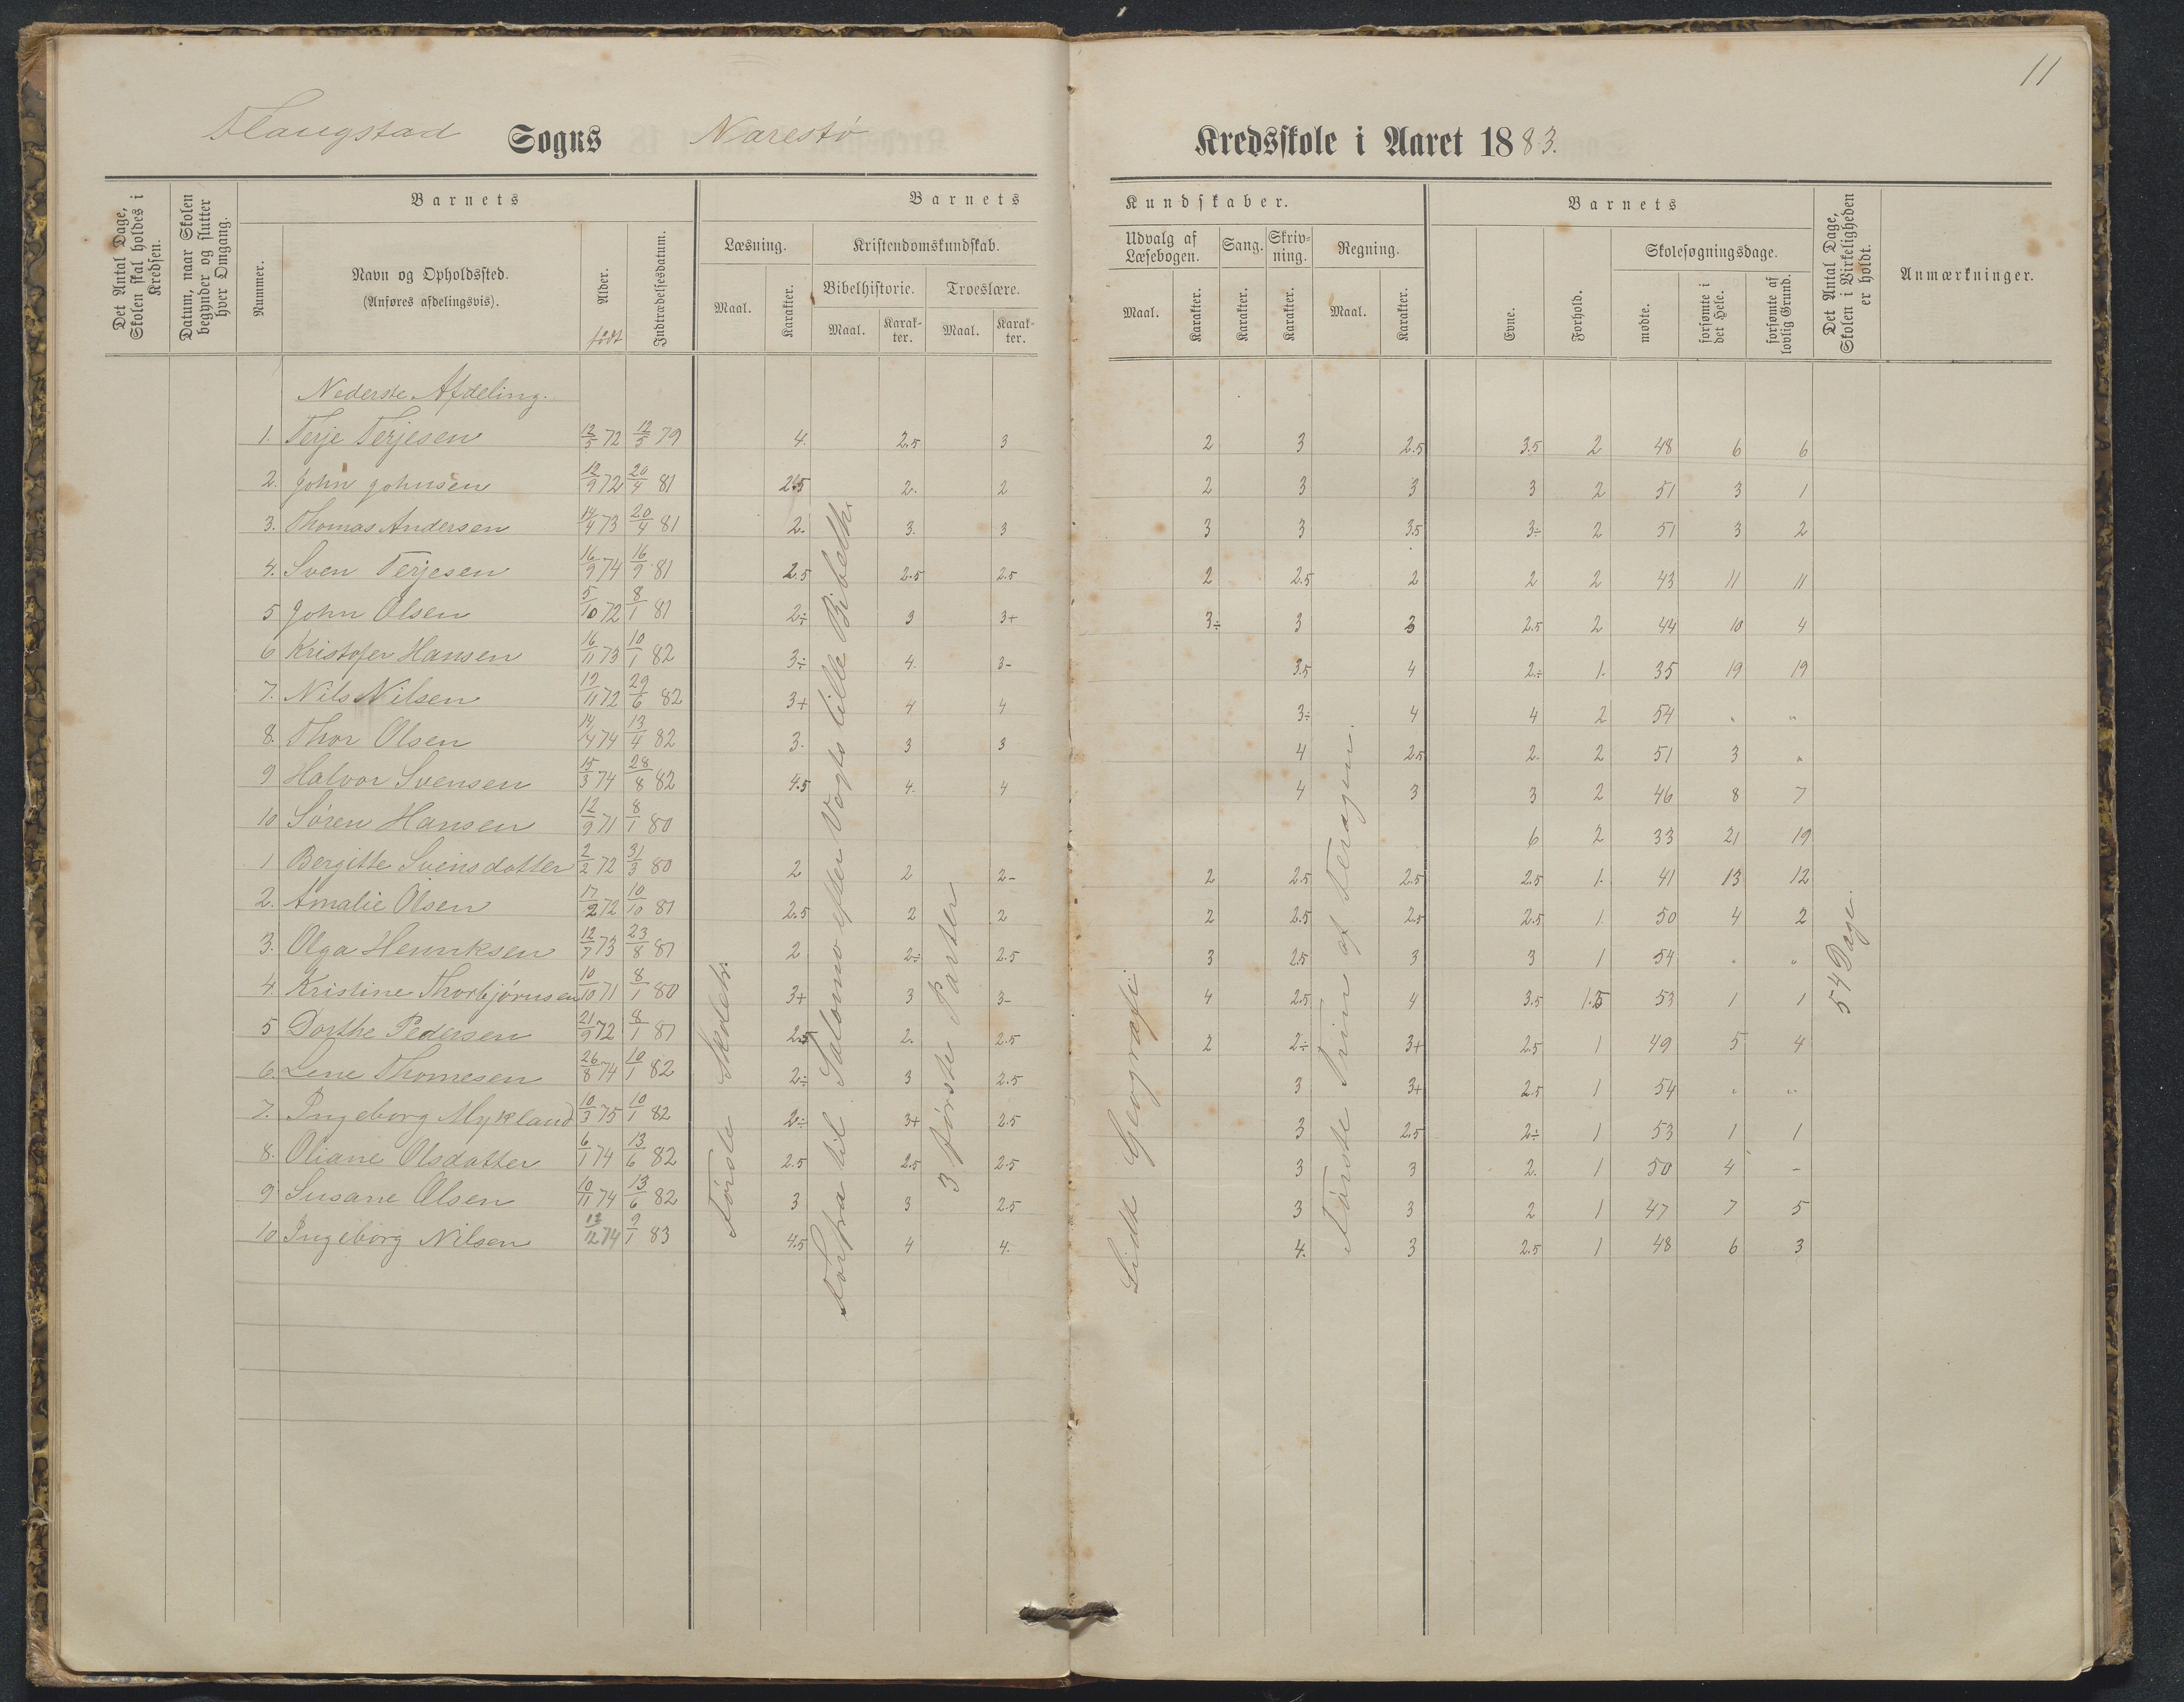 11
Flaugstad Sogns Narestø Kredsskole i Aaret 1883.
Det Antal Dage, Skolen skal holdes i Kredsen.
Datum, naar Skolen begynder og slutter hver Omgang.
Barnets
Nummer.
Navn og Opholdssted.
(Anføres afdelingsvis).
Alder.
født
Indtrædelsesdatum.
Barnets Kundskaber.
Læsning.
Maal.
Karakter.
Kristendomskundskab.
Bibelhistorie.
Maal.
Karakter.
Troeslære.
Maal.
Karakter.
Udvalg af Læsebogen.
Maal.
Karakter.
Sang.
Karakter.
Skrivning.
Karakter.
Regning.
Maal.
Karakter.
Barnets
Evne.
Forhold.
Skolesøgningsdage.
mødte.
forsømte i det Hele.
forsømte af lovlig Grund.
Det Antal Dage, Skolen i Virkeligheden er holdt.
Anmærkninger.
Nederste Afdeling.
1. Terje Terjesen 12/5 72 12/5 79 4. 2.5 3 2 3 2.5 3.5 2 48 6 6
2. John Johnsen 12/9 72 20/4 81 2.5 2. 2 2 3 3 3 2 51 3 1
3. Thomas Andersen 14/4 73 20/4 81 2. 3. 3 3 3 3.5 3÷ 2 51 3 2
4. Sven Terjesen 16/9 74 16/9 81 2.5 2.5 2.5 2 2.5 2 2 2 43 11 11
5 John Olsen 5/10 72 8/1 81 2÷ 3 3+ 3÷ 3 3 2.5 2 44 10 4
6 Kristofer Hansen 16/11 73 10/1 82 3÷ 4. 3- 3.5 4 2÷ 1. 35 19 19
7. Nils Nilsen 19/11 72 29/6 82 3+ 4 4 3÷ 4 4 2 54 " "
8. Thor Olsen 14/4 74 13/4 82 3. 3 3 4 2.5 2. 2 51 3 "
9 Halvor Svensen 15/3 74 28/8 82 4.5 4. 4 4 3 3 2 46 8 7
10 Søren Hansen 12/9 71 8/1 80 6 2 33 21 19
1 Bergitte Svensdatter 2/2 72 31/3 80 2 2 2- 2 2.5 2.5 2.5 1. 41 13 12
2. Amalie Olsen 17/2 72 10/10 81 2.5 2 2 2 2.5 2.5 2.5 1. 50 4 2
3. Olga Henriksen 12/7 73 23/8 81 2 2÷ 2.5 3 2.5 3 3 1 54 " "
4. Kristine Thorbjørnsen 10/10 71 8/1 80 3+ 3 3- 4 2.5 4 3.5 1.5 53 1 1
5 Dorthe Pedersen 21/9 72 8/1 81 2.5 2. 2.5 2 2÷ 3+ 2.5 1 49 5 4
6. Lene Thomesen 26/8 74 10/1 82 2÷ 3 2.5 3 3+ 2.5 1 54 " "
7. Ingeborg Mykland 10/3 75 10/1 82 2÷ 3+ 2.5 3 2.5 2÷ 1 53 1 1
8. Oliane Olsdatter 6/1 74 13/6 82 2.5 2.5 2.5 3 3 2. 1 50 4 -
9 Susane Olsen 10/11 74 13/6 82 3 3 2.5 3 3 2 1 47 7 5
10 Ingeborg Nilsen 12/12 74 9/1 83 4.5 4 4. 4. 3 2.5 1 48 6 3
Første Skoletr.
Forfra til Salomo efter Vogts lille Bibelh.
3 første Parter
Lidt Geografi
Første Trin af Teragen.
54 Dage.